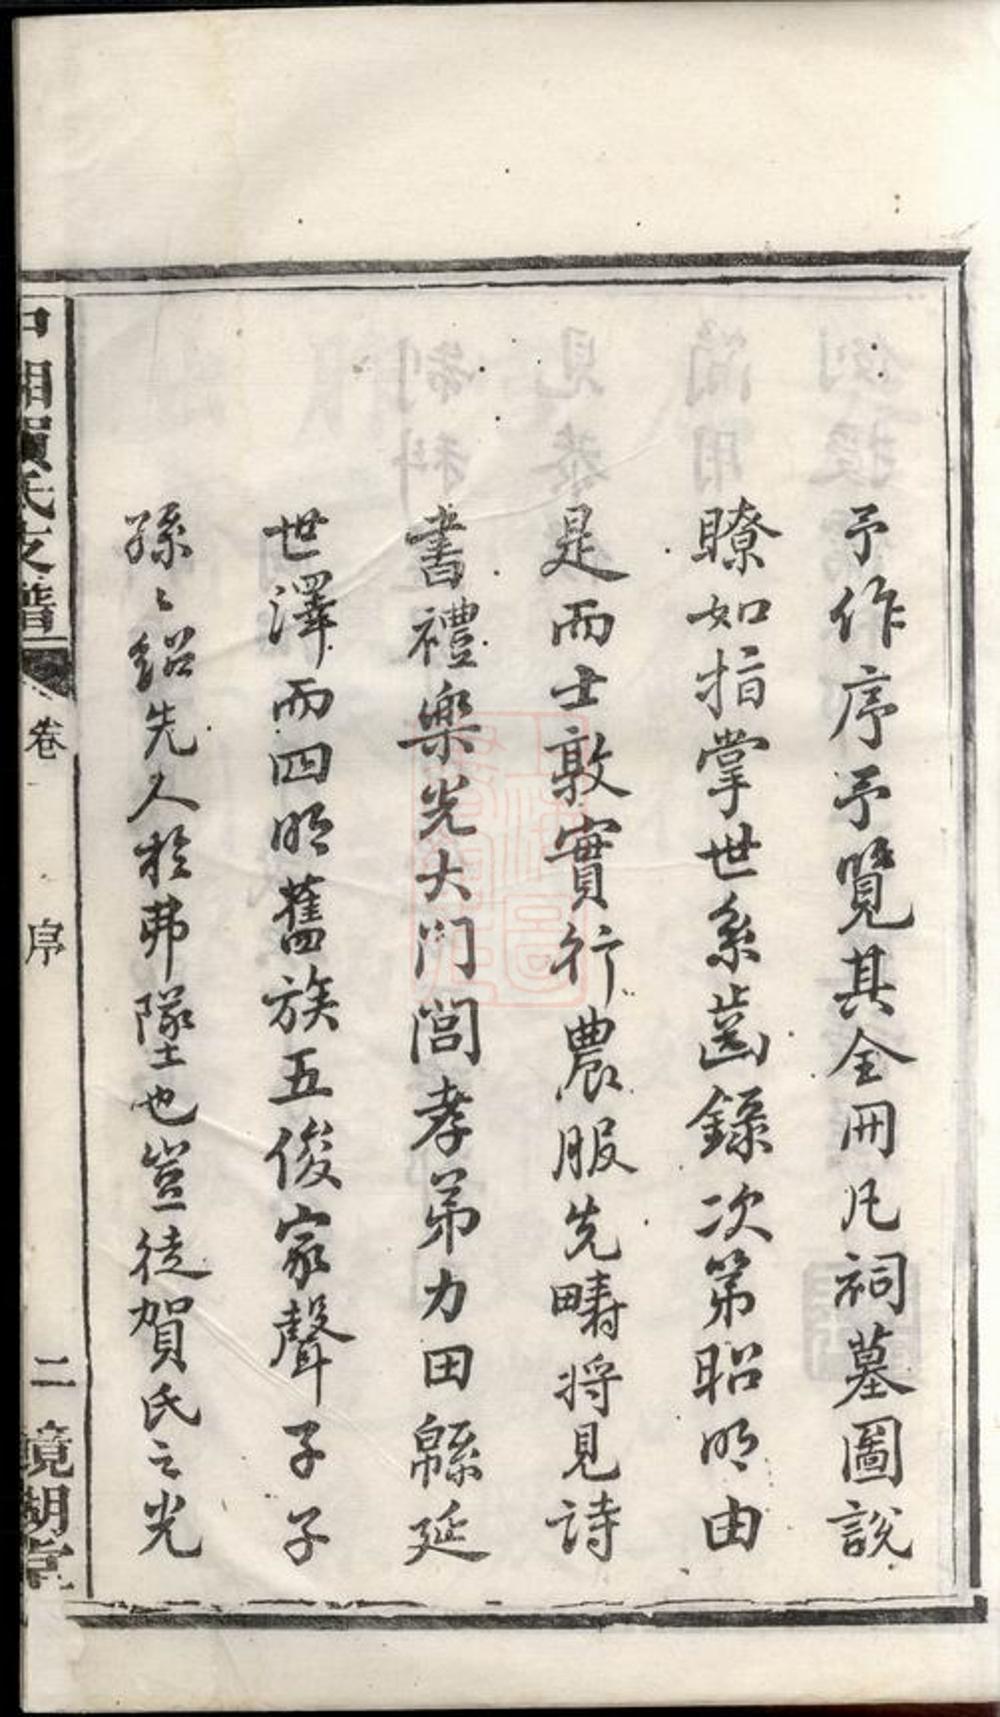 予作序予覽其全冊凡祠墓圖說
瞭如指掌世系齒錄次第昭明由
是而士敦實行農服先疇將見詩
書禮樂光大門閭孝弟力田緜延
世澤而四明舊族五俊家聲子子
孫〻紹先人於弗墜也豈徒賀氏之光
中湘賀氏支譜
卷
序
二
鏡湖堂